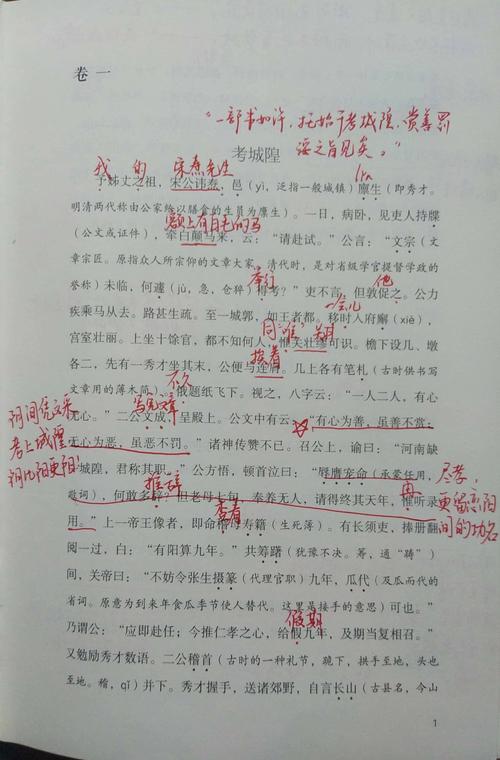 卷 一
“一部书如许,托始于考城隍,赏善罚
淫之旨见矣。”
考城隍
我 的 宋焘先生
lǐn
予姊丈之祖,宋公讳焘,邑(yì,泛指一般城镇)廪生(即秀才。
明清两代称由公家给以膳食的生员为廪生)。一日,病卧,见吏人持牒
额上有白毛的马
(公文或证件),牵白颠马来,云:“请赴试。”公言:“文宗(文
章宗匠。原指众人所宗仰的文章大家,清代时,是对省级学官提督学政的
举行
他
誉称)未临,何遽(jù,急,仓猝)得考?”吏不言,但敦促之。公力
一会儿
疾乘马从去。路甚生疏。至一城郭,如王者都。移时入府廨(xiè),
同“唯”
宫室壮丽。上坐十馀官,都不知何人,惟关壮缪可识。檐下设几、墩
挨着
各二,先有一秀才坐其末,公便与连肩。几上各有笔札(古时供书写
不久
文章用的薄木简)。俄题纸飞下。视之,八字云:“一人二人,有心
写完文章
无心。”二公文成,呈殿上。公文中有云:“有心为善,虽善不赏;
阴间凭文采
考上城隍
无心为恶,虽恶不罚。”诸神传赞不已。召公上,谕曰:“河南缺
一城隍,君称其职。”公方悟,顿首泣曰:“辱膺宠命(承蒙任用,
推辞
再
尽孝,
更留恋阳
间的功名
敬词),何敢多辞?但老母七旬,奉养无人,请得终其天年,惟听录
查看
用。”上一帝王像者,即命稽母寿籍(生死簿)。有长须吏,捧册翻
阅一过,白:“有阳算九年。”共筹躇(犹豫不决。筹,通“踌”)
间,关帝曰:“不妨令张生摄篆(代理官职)九年,瓜代(及瓜而代的
省词。原意为到来年食瓜季节使人替代。这里是接手的意思)可也。”
假期
乃谓公:“应即赴任;今推仁孝之心,给假九年,及期当复相召。”
又勉励秀才数语。二公稽首(古时的一种礼节,跪下,拱手至地,头也
至地。稽,qǐ)并下。秀才握手,送诸郊野,自言长山(古县名,今山
1